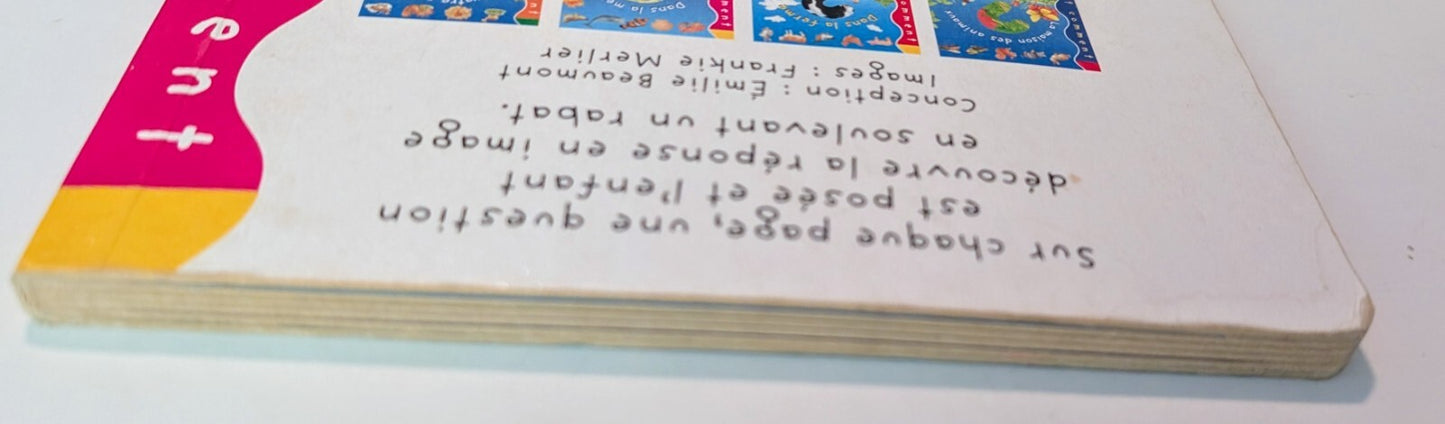 Sur chaque page, une question
est posée et l'enfant
découvre la réponse en image
en soulevant un rabat.
Conception : Émilie Beaumont
Images : Frankie Merlier
dans la ferme
maison des animaux
ent